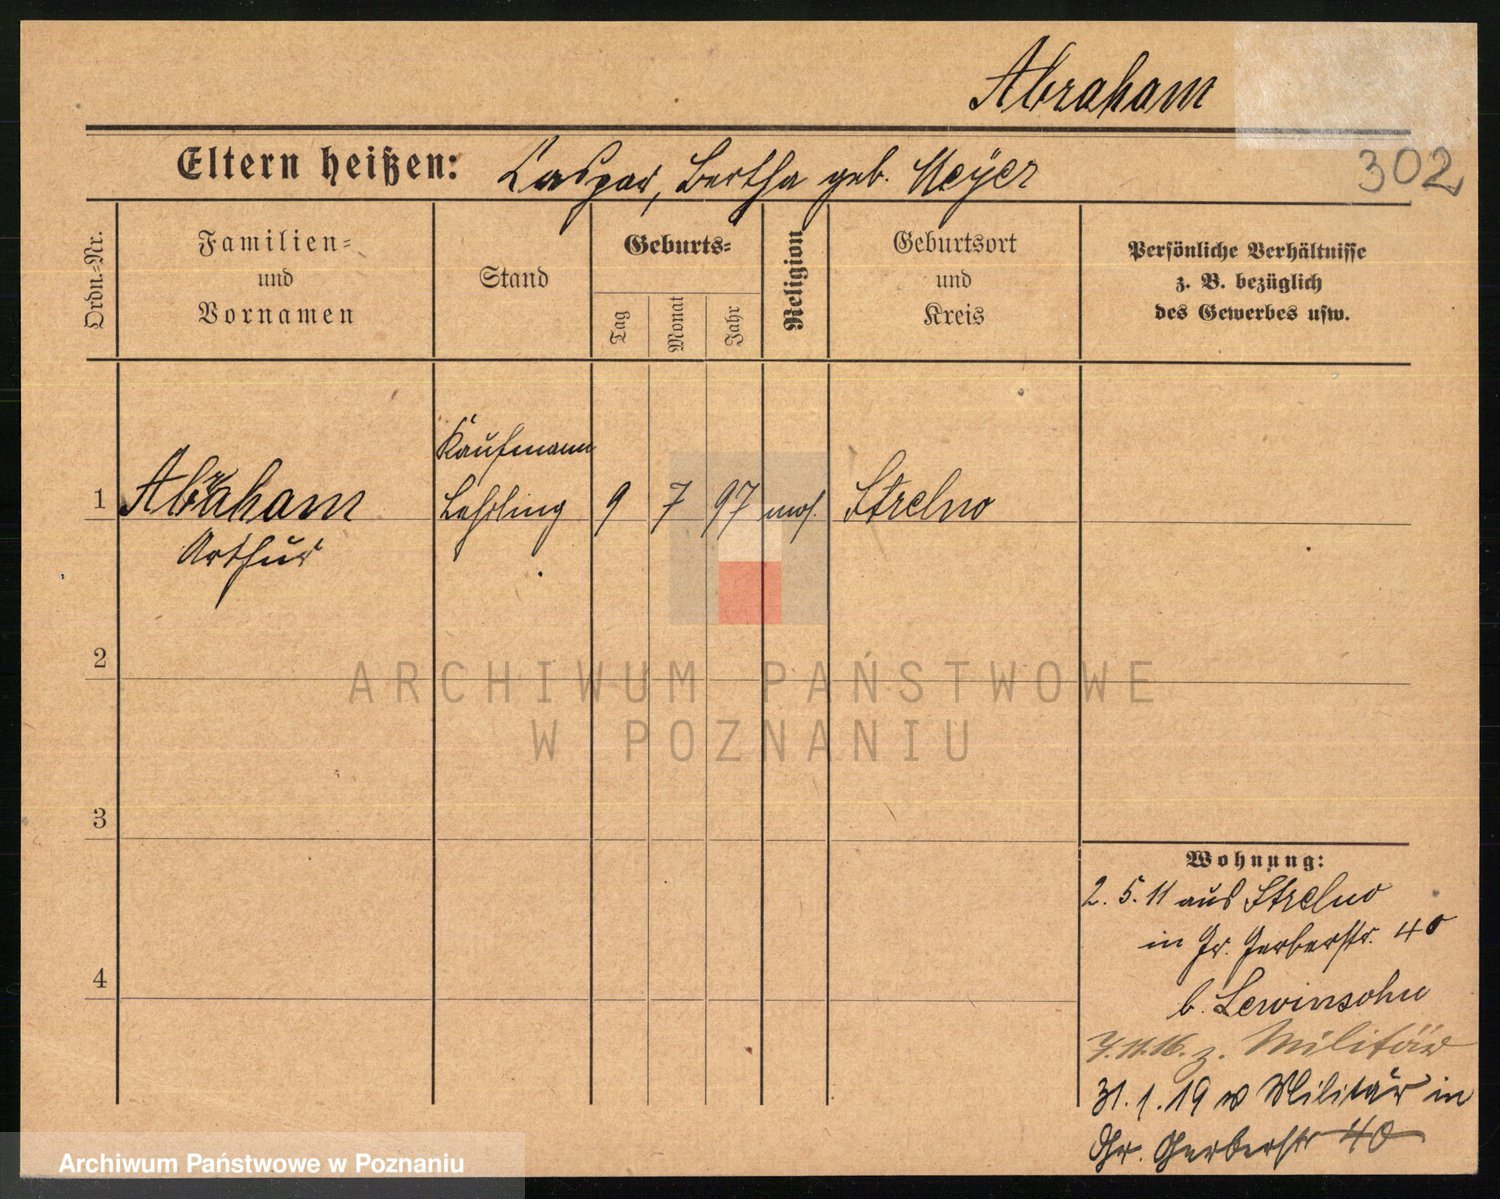 Abraham
302
Eltern heißen: Caspar, Bertha geb. Meyer
Ordn.-Nr.
Familien-
und
Vornamen
Stand
Geburts-
Tag
Monat
Jahr
Religion
Geburtsort
und
Kreis
Persönliche Verhältnisse
z. B. bezüglich
des Gewerbes usw.
Kaufmann
1 Abraham Lehrling 9 7 97 mos. Strelno
Arthur
2
ARCHIWUM PAŃSTWOWE
W POZNANIU
3
Wohnung:
2. 5. 11 aus Strelno
in Gr. Gerberstr. 40
b. Lewinsohn
4
7.11.16. z. Militär
31. 1. 19 v Militär in
Gr. Gerberstr 40
Archiwum Państwowe w Poznaniu